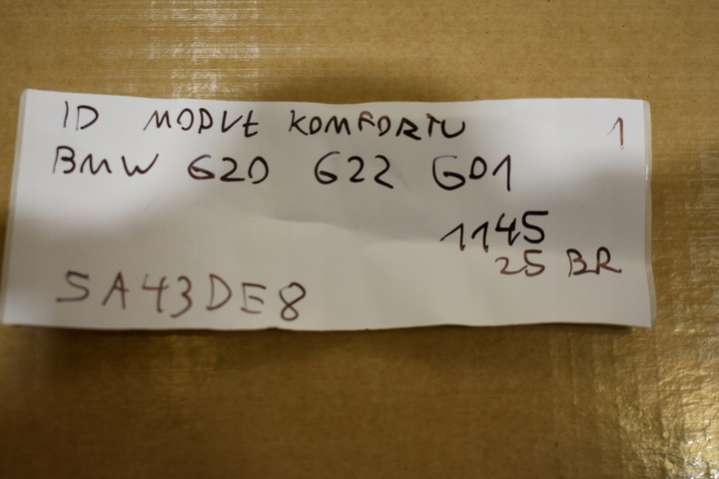 ID MODUŁ KOMFORTU 1
BMW G20 G22 G01
1145
25 BR
5A43DE8